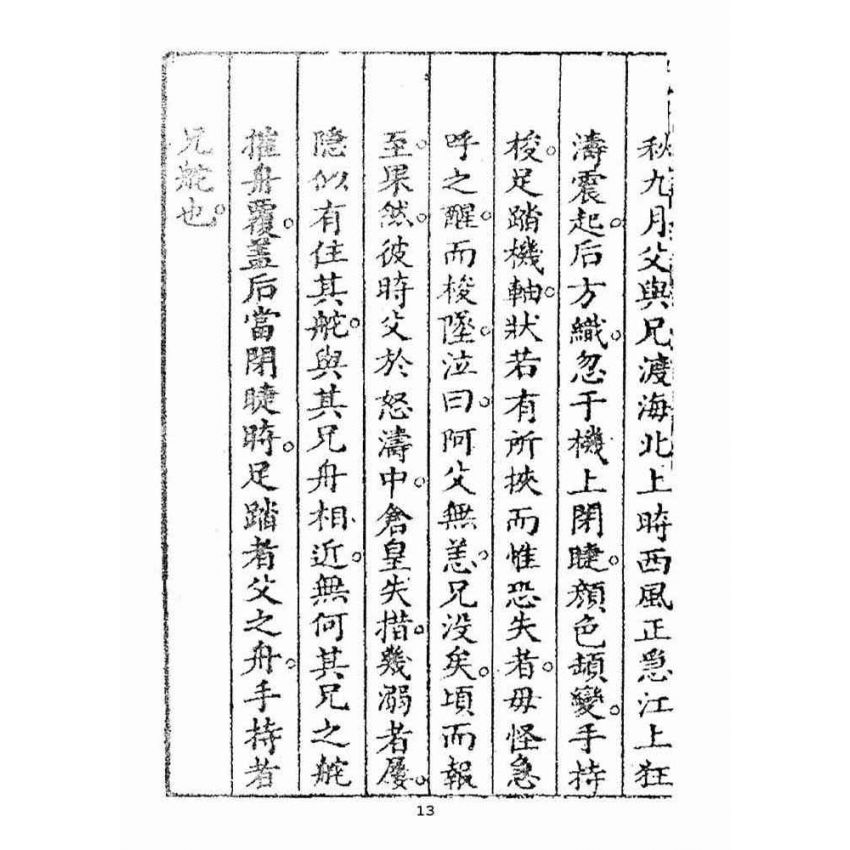 秋九月父與兄渡海北上時西風正急江上狂
濤震起。后方織。忽于機上閉睫。顏色頓變。手持
梭。足踏機軸。狀若有所挾而惟恐失者。毋怪急
呼之醒。而梭墜。泣曰。阿父無恙。兄没矣。頃而報
至。果然。彼時父於怒濤中。倉皇失措。幾溺者屡。
隱似有住其舵。與其兄舟相近。無何其兄之舵
摧舟覆。盖后當閉睫時。足踏者父之舟。手持者
兄舵也。
13